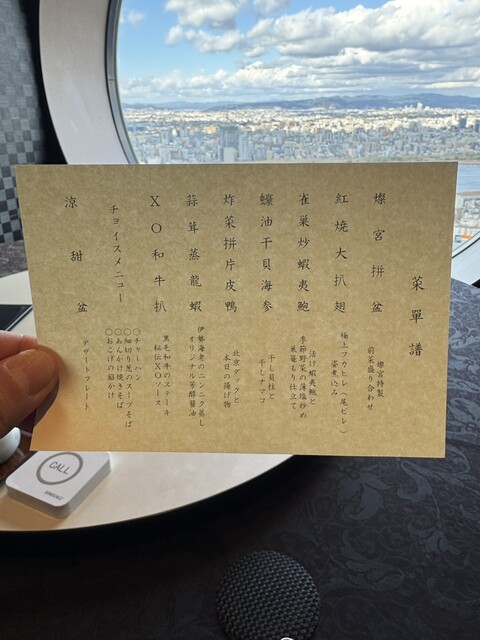 菜單譜
燦宮拼盆
燦宮特製
前菜盛り合わせ
紅焼大扒翅
極上フカヒレ(尾ビレ)
姿煮込み
雀巣炒蝦夷鮑
活け蝦夷鮑と
季節野菜の薄塩炒め
巣篭もり仕立て
蠔油干貝海参
干し貝柱と
干しナマコ
炸菜拼片皮鴨
北京ダックと
本日の揚げ物
蒜茸蒸龍蝦
伊勢海老のニンニク蒸し
オリジナル芳醇醤油
XO和牛扒
黒毛和牛のステーキ
秘伝XOソース
チョイスメニュー
○チャーハン
○細切り葱のスープそば
○あんかけ焼きそば
○おこげの餡かけ
涼甜盆
デザートプレート
CALL